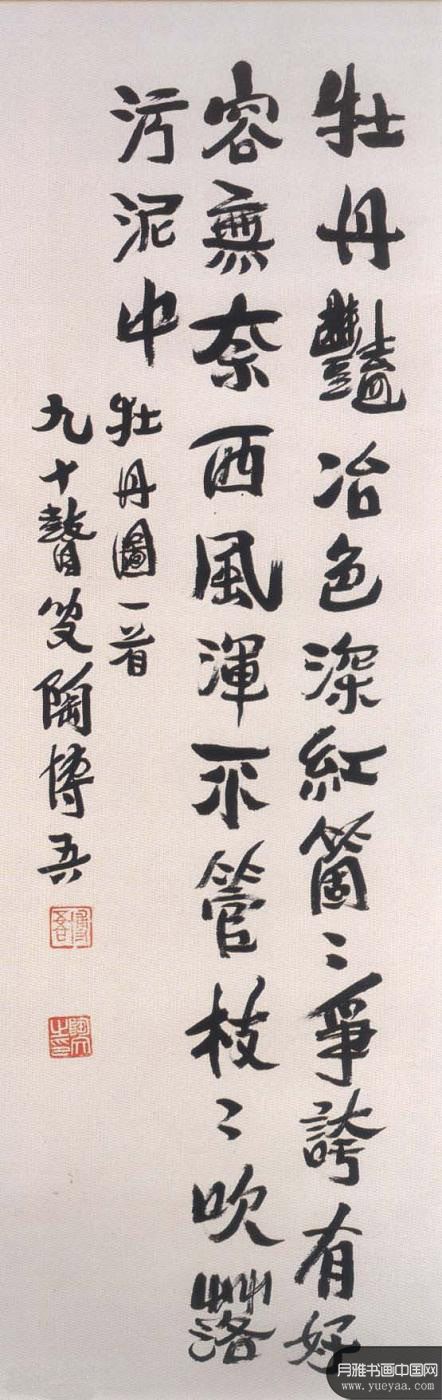 牡丹豔冶色深紅箇〻爭誇有好
容無奈西風渾不管枝〻吹落
污泥中
牡丹圖一首
九十瞽叟陶博吾
博吾
陶文之印
月雅书画中国网
www.yueyaa.com